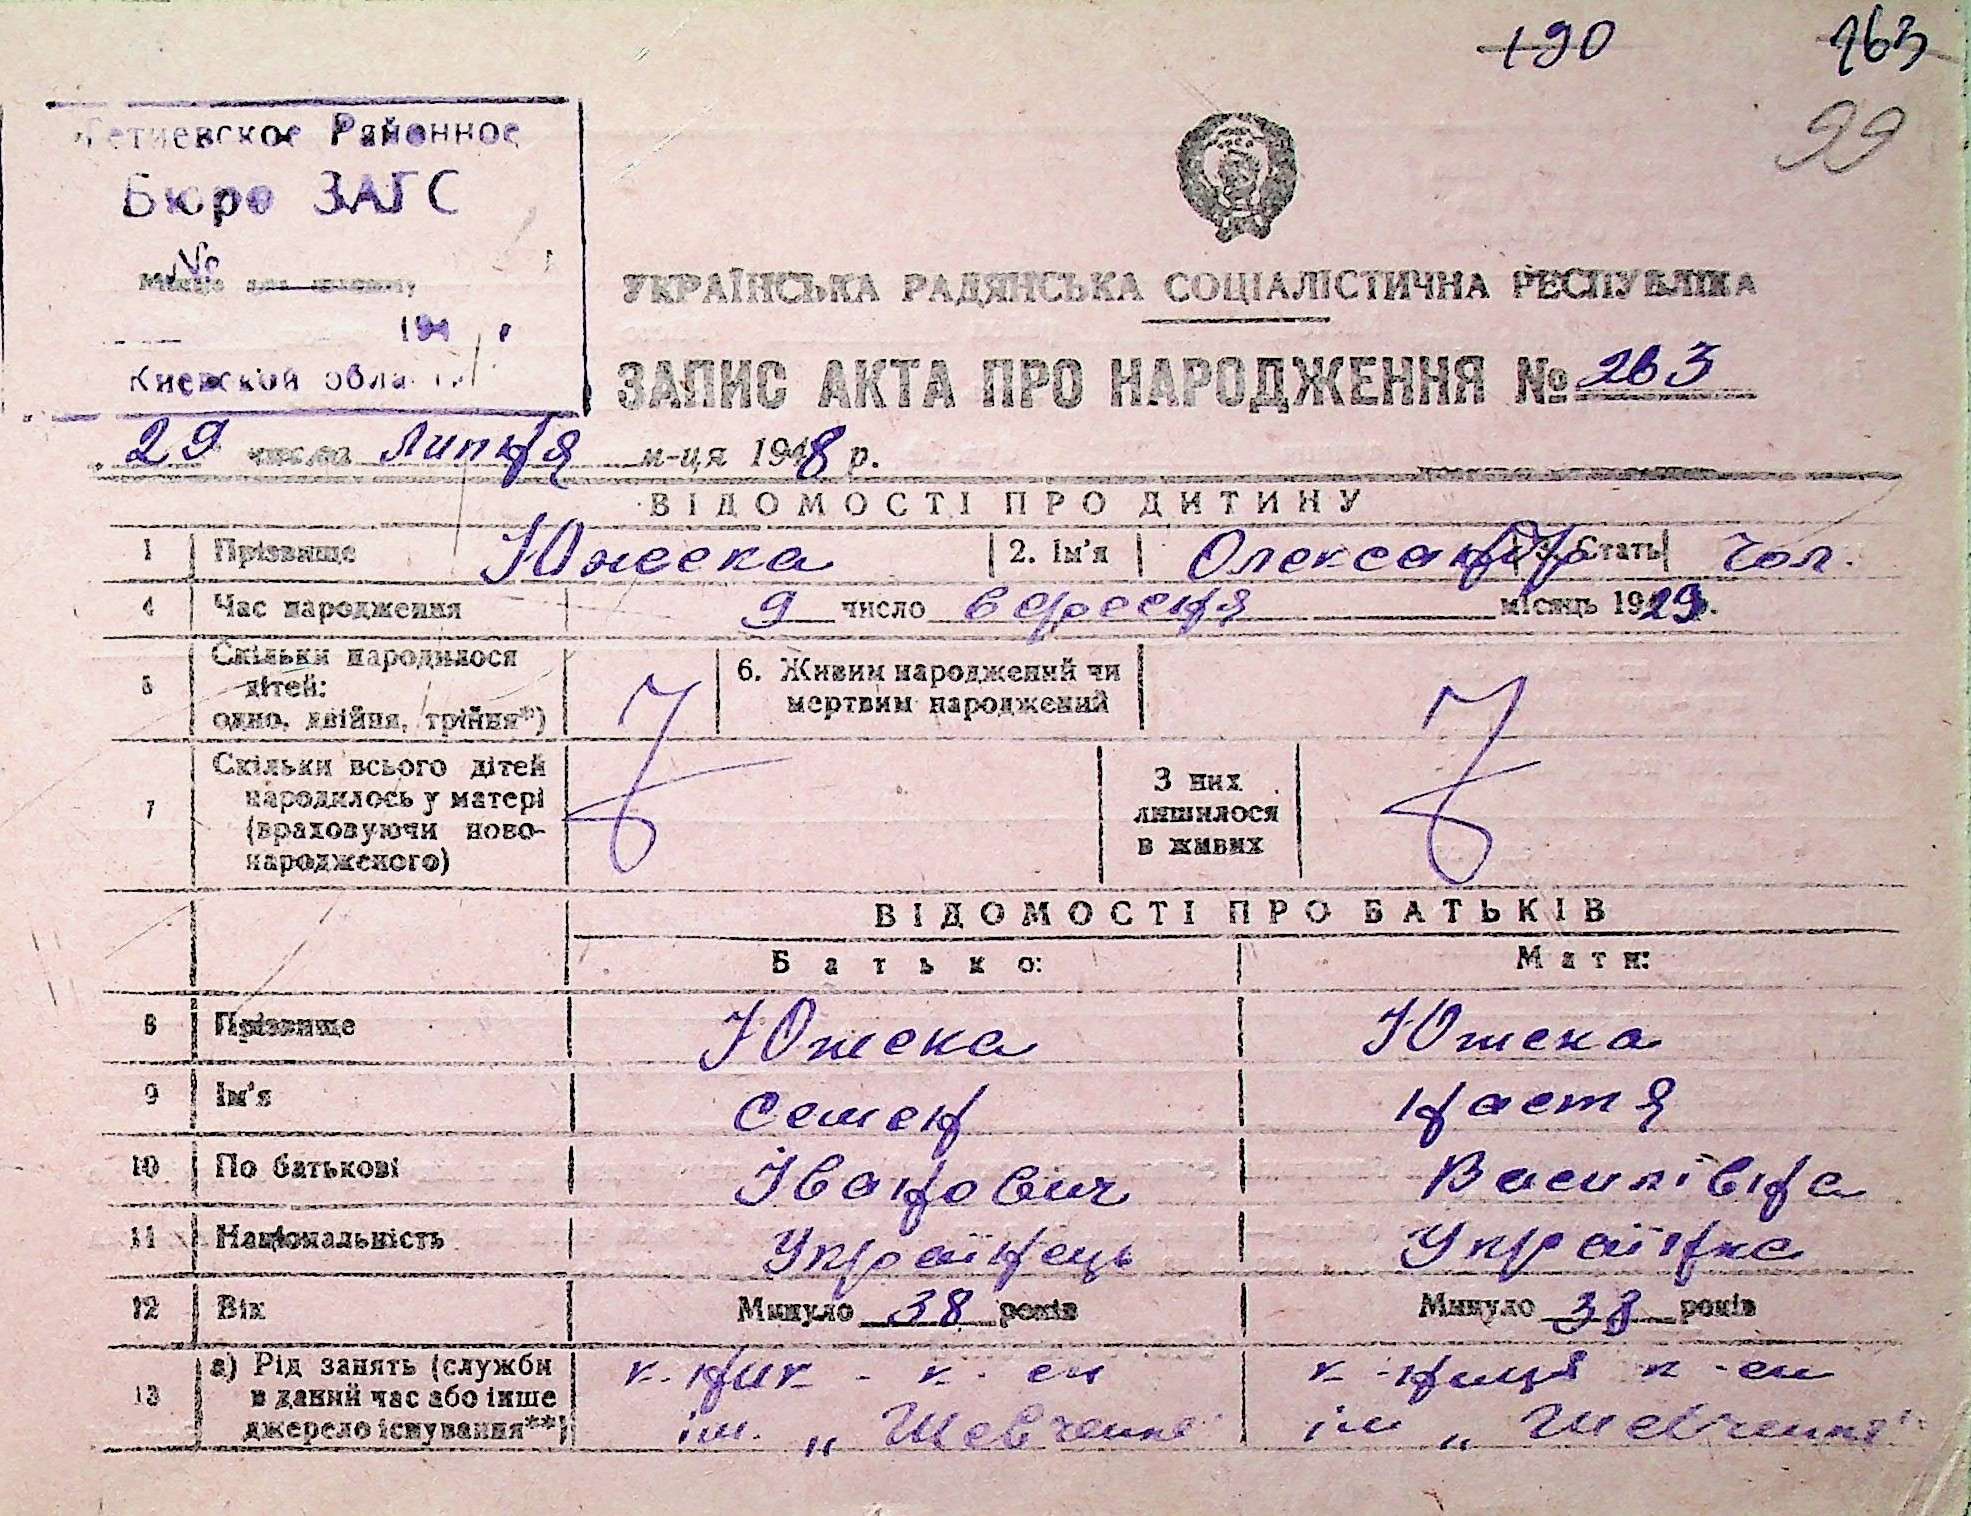 190 163
99
Тетиевское Районное
Бюро ЗАГС
№
Місце для штампу
194 г
Киевской области
УКРАЇНСЬКА РАДЯНСЬКА СОЦІАЛІСТИЧНА РЕСПУБЛІКА
ЗАПИС АКТА ПРО НАРОДЖЕННЯ № 263
29 числа липня м-ця 1948 р.
ВІДОМОСТІ ПРО ДИТИНУ
1 Прізвище Южека 2. Ім'я Олександр 3. Стать чол.
4 Час народження 9 число вересня місяць 1929 р.
5 Скільки народилося
дітей:
одно, двійня, трійня*)
6. Живим народжений чи
мертвим народжений
7 Скільки всього дітей
народилось у матері
(враховуючи ново-
народженого)
З них
лишилося
в живих
ВІДОМОСТІ ПРО БАТЬКІВ
Батько: Мати:
8 Прізвище Южека Южека
9 Ім'я Семен Настя
10 По батькові Іванович Василівна
11 Національність Українець Українка
12 Вік Минуло 38 років Минуло 38 років
13 а) Рід занять (служби к-ник - к-сп к-ниця к-сп
в даний час або інше
джерело існування**) ім. „Шевченка" ім „Шевченка"